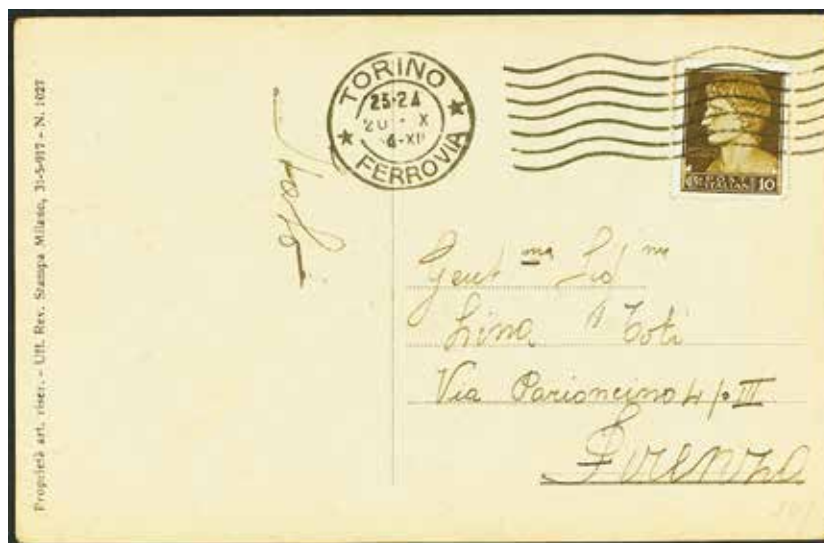 Proprietà art. riser. - Uff. Rev. Stampa Milano, 31-5-917 - N. 1027
TORINO
23-24
20 X
XII
FERROVIA
POSTE
ITALIANE
10
Gent ma Sig na
Lina Toti
Via Parioncino 4 p. III
Firenze